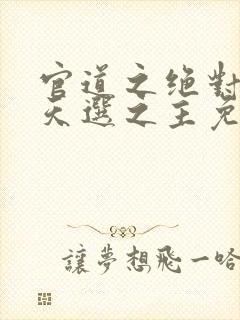 官道之绝對
天選之主免
讓夢想飛一哈